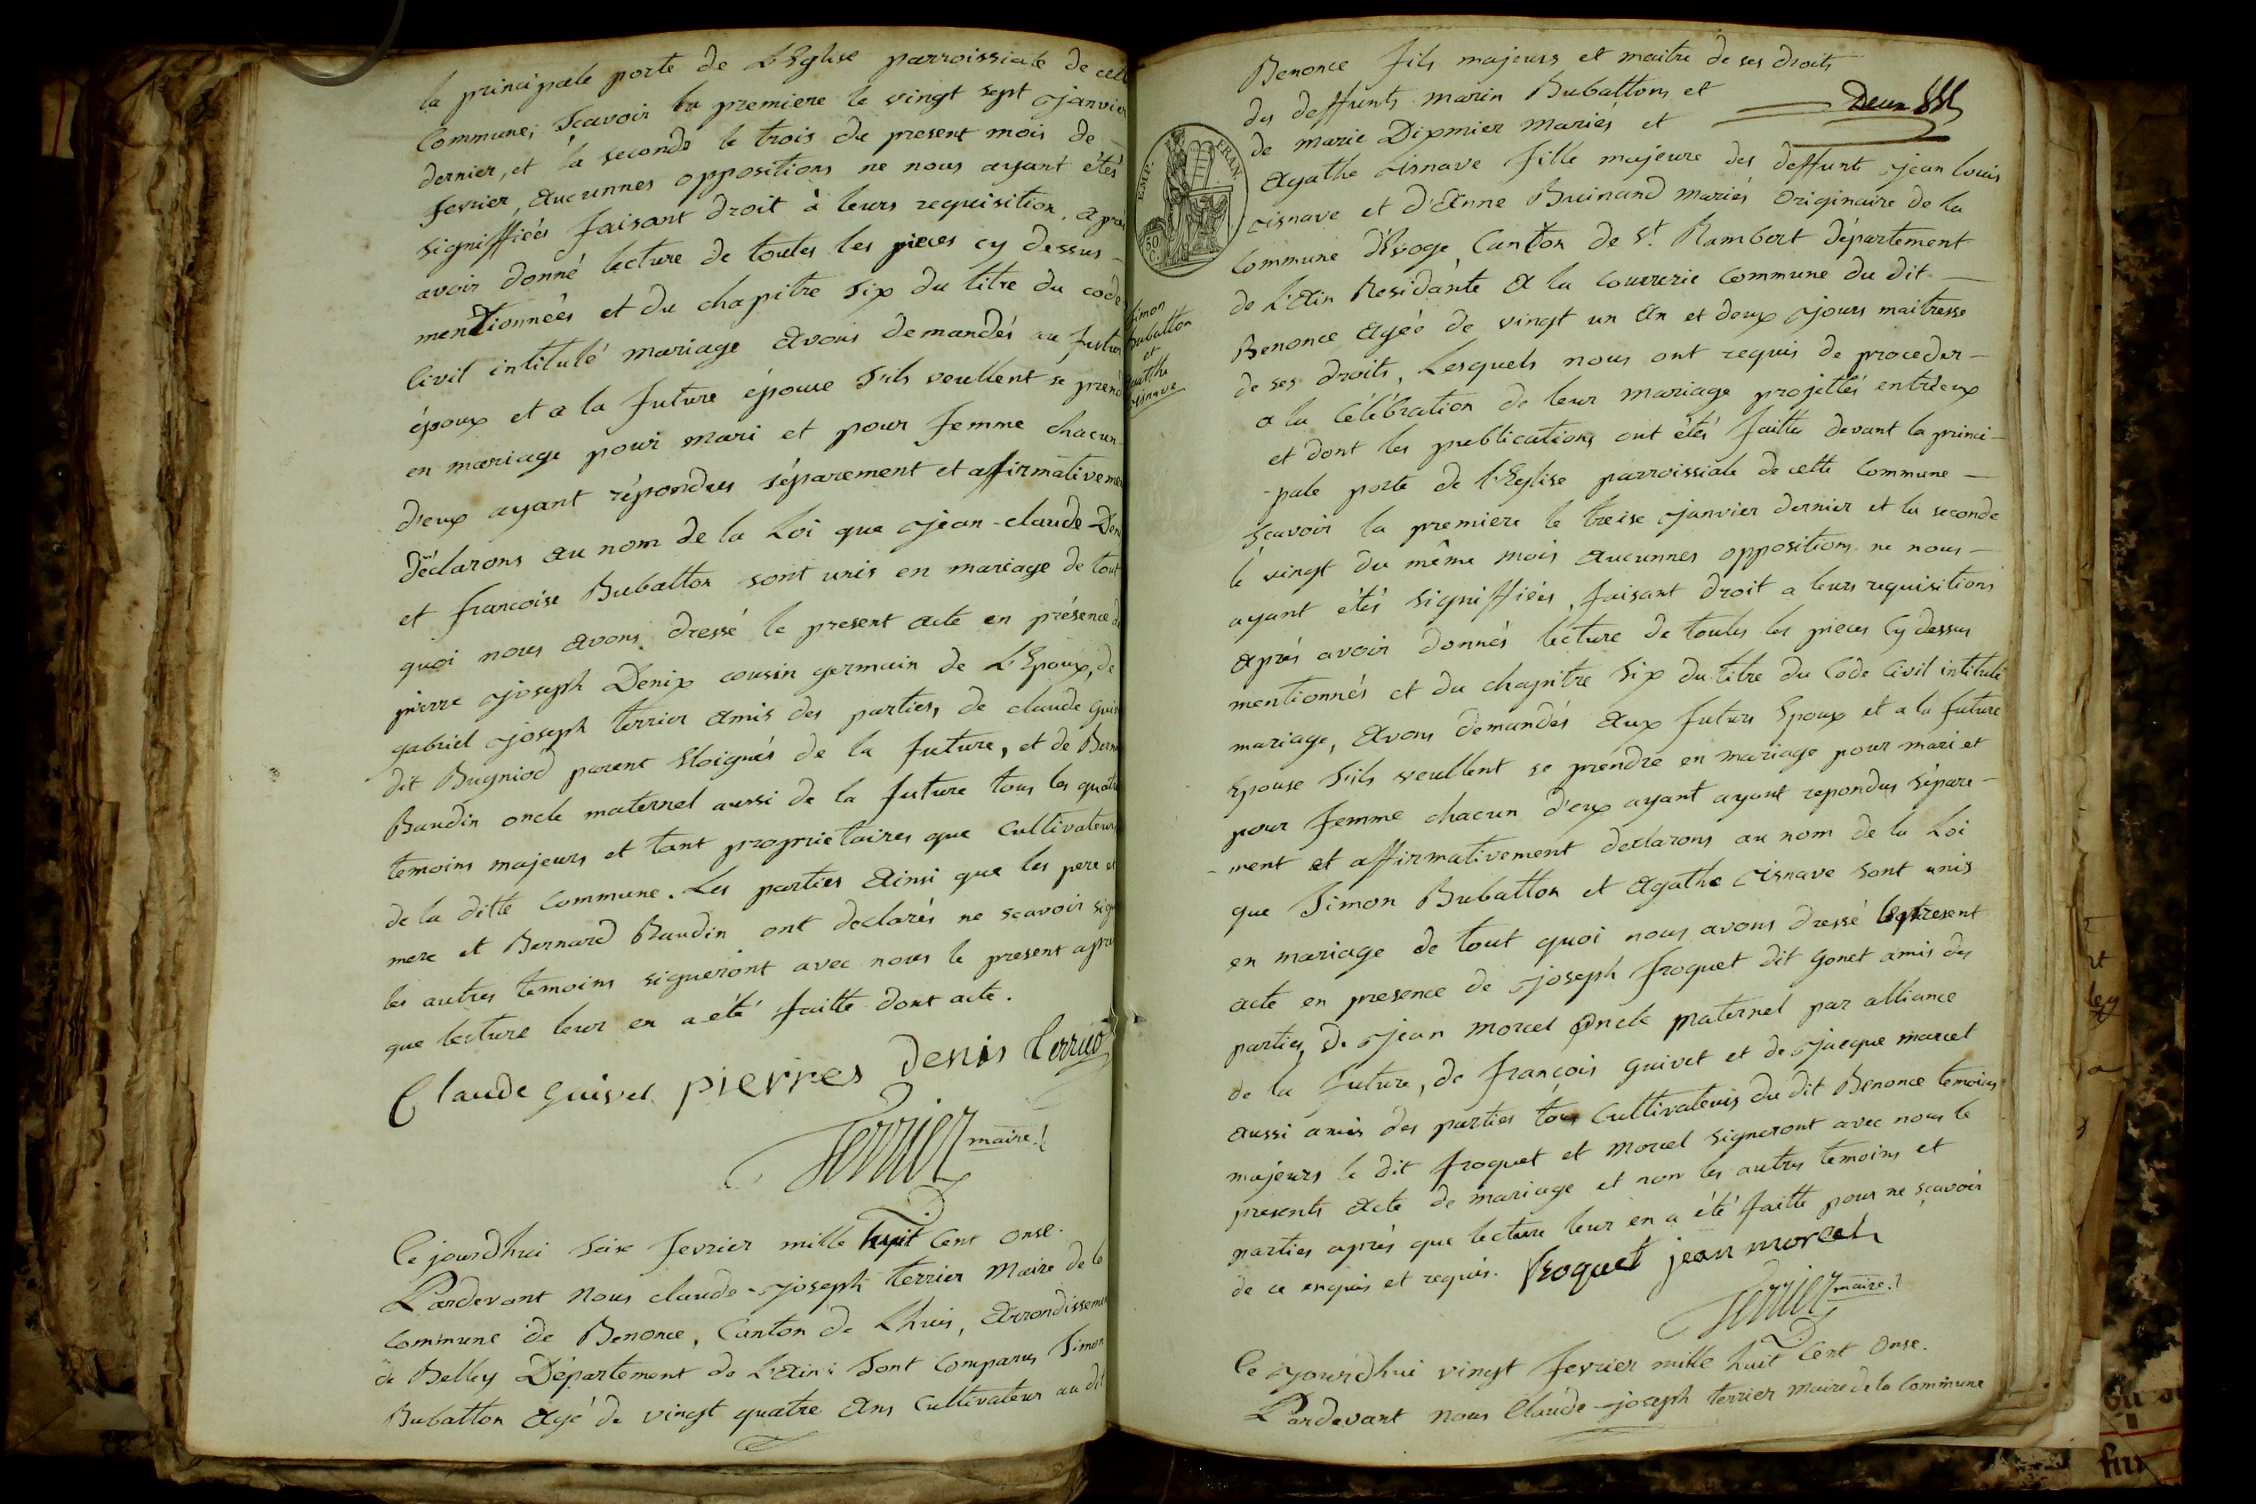 la principale porte de L'Eglise parroissiale de cette
Commune; Scavoir la premiere le vingt sept janvier
dernier, et la seconde le trois du present mois de
fevrier, aucunnes oppositions ne nous ayant étés
signiffiées faisant droit à leurs requisition, apres
avoir donné lecture de toutes les pieces cy dessus
mentionnées et du chapitre Six du titre du code
Civil intitulé mariage avons demandés au futur
époux et a la future épouse S'ils veullent se prend
en mariage pour mari et pour femme chacun
d'eux ayant répondus séparement et affirmativeme
déclarons au nom de la Loi que jean-claude Den
et francoise Bubatton sont unis en mariage de tout
quoi nous avons dressé le present acte en présence de
pierre joseph Denix cousin germain de L'Epoux, de
gabriel joseph terrier amis des parties, de claude Guiv
dit Bugniod parent Eloignés de la future, et de Berna
Baudin oncle maternel aussi de la future tous les quatre
temoins majeurs et tant proprietaires que Cultivateurs
de la ditte Commune. Les parties ainsi que les pere et
mere et Bernard Baudin ont declarés ne sçavoir sign
les autres temoins signeront avec nous le present apres
que lecture leur en a été faitte dont acte.
Claude guivet pierres Denis terrier
Terrier maire
Ce jourdhui Seise fevrier mille huit Cent onse.
Pardevant Nous claude-joseph terrier Maire de la
Commune de Benonce, Canton de Lhuis, arrondisseme
de Belley Département de L'ain: Sont Comparus Simon
Bubatton agé de vingt quatre ans Cultivateur au dit
Benonce fils majeurs et maitre de ses droits
des deffunts marin Bubattons et
de marie Dixmier mariés et
EMP. FRAN.
50 C.
Simon
Bubatton
et
agathe
Cisnave
agathe Cisnave fille majeure des deffunt jean louis
Cisnave et d'anne Buinand mariés Originaire de la
Commune d'Evoge, Canton de St. Rambert département
de L'ain Residante a la Courrerie Commune du dit
Benonce agée de vingt un an et deux jours maitresse
de ses droits, Lesquels nous ont requis de proceder
a la Célébration de leur mariage projettés entr'eux
et dont les publications ont étés faitte devant la princi-
-pale porte de l'Eglise parroissiale de cette Commune
Sçavoir la premiere le treise janvier dernier et la seconde
le vingt du même mois aucunnes oppositions ne nous
ayant étés signiffiées, faisant droit a leurs requisitions
aprés avoir donnés lecture de toutes les pieces Cy dessus
mentionnés et du chapitre Six du titre du Code Civil intitulé
mariage, avons demandés aux futurs Epoux et a la future
Epouse S'ils veullent se prendre en mariage pour mari et
pour femme chacun d'eux ayant ayant repondus Séparé-
-ment et affirmativement declarons au nom de la Loi
que Simon Bubatton et agathe Cisnave sont unis
en mariage de tout quoi nous avons dressé le present
acte en presence de joseph froquet dit Gonet amis des
parties, de jean morcel oncle paternel par alliance
de la future, de françois Guivet et de jacque marcel
aussi amis des parties tous Cultivateurs du dit Benonce temoins
majeurs le dit froquet et morcel Signeront avec nous le
presents acte de mariage et non les autres temoins et
parties aprés que lecture leur en a été faitte pour ne sçavoir
de ce enquis et requis. froquet jean morcel
Terrier maire
Ce jourdhui vingt fevrier mille huit Cent onse.
Pardevant Nous Claude-joseph terrier Maire de la Commune